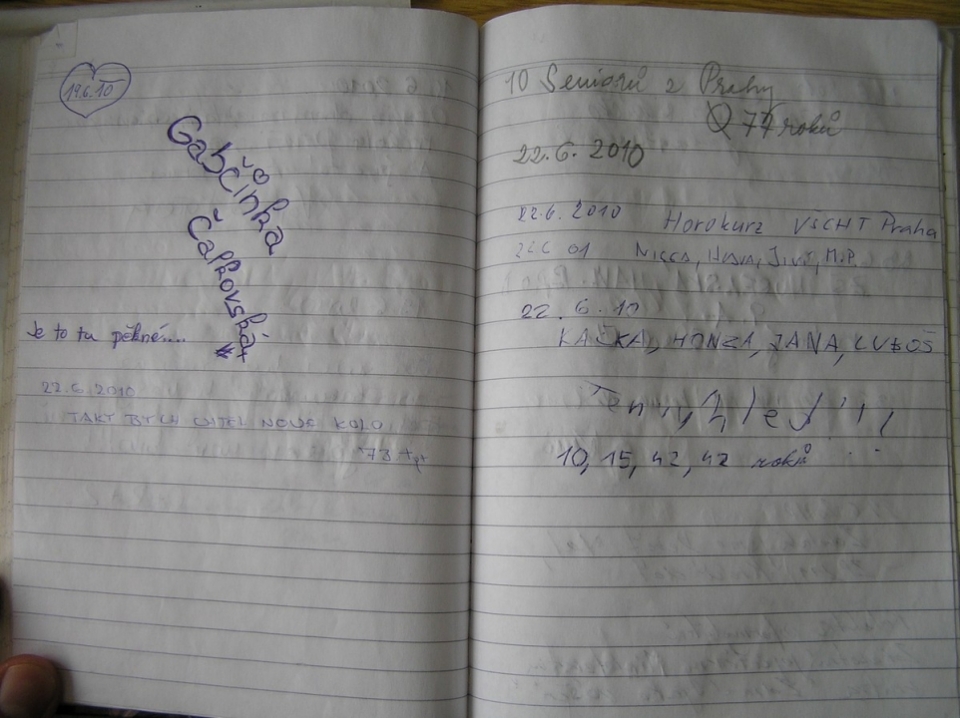 19.6.10
Gabčinka
Čapkovská
Je to tu pěkné....
22.6.2010
TAKY BYCH CHTEL NOVE KOLO
10 Seniorů z Prahy
77 roků
22.6. 2010
22.6. 2010 Horokurz VŠCHT Praha
22.6. 10
KAČKA, HONZA, JANA, LUBOŠ
Ten výhled!!!
10, 15, 42, 42 roků